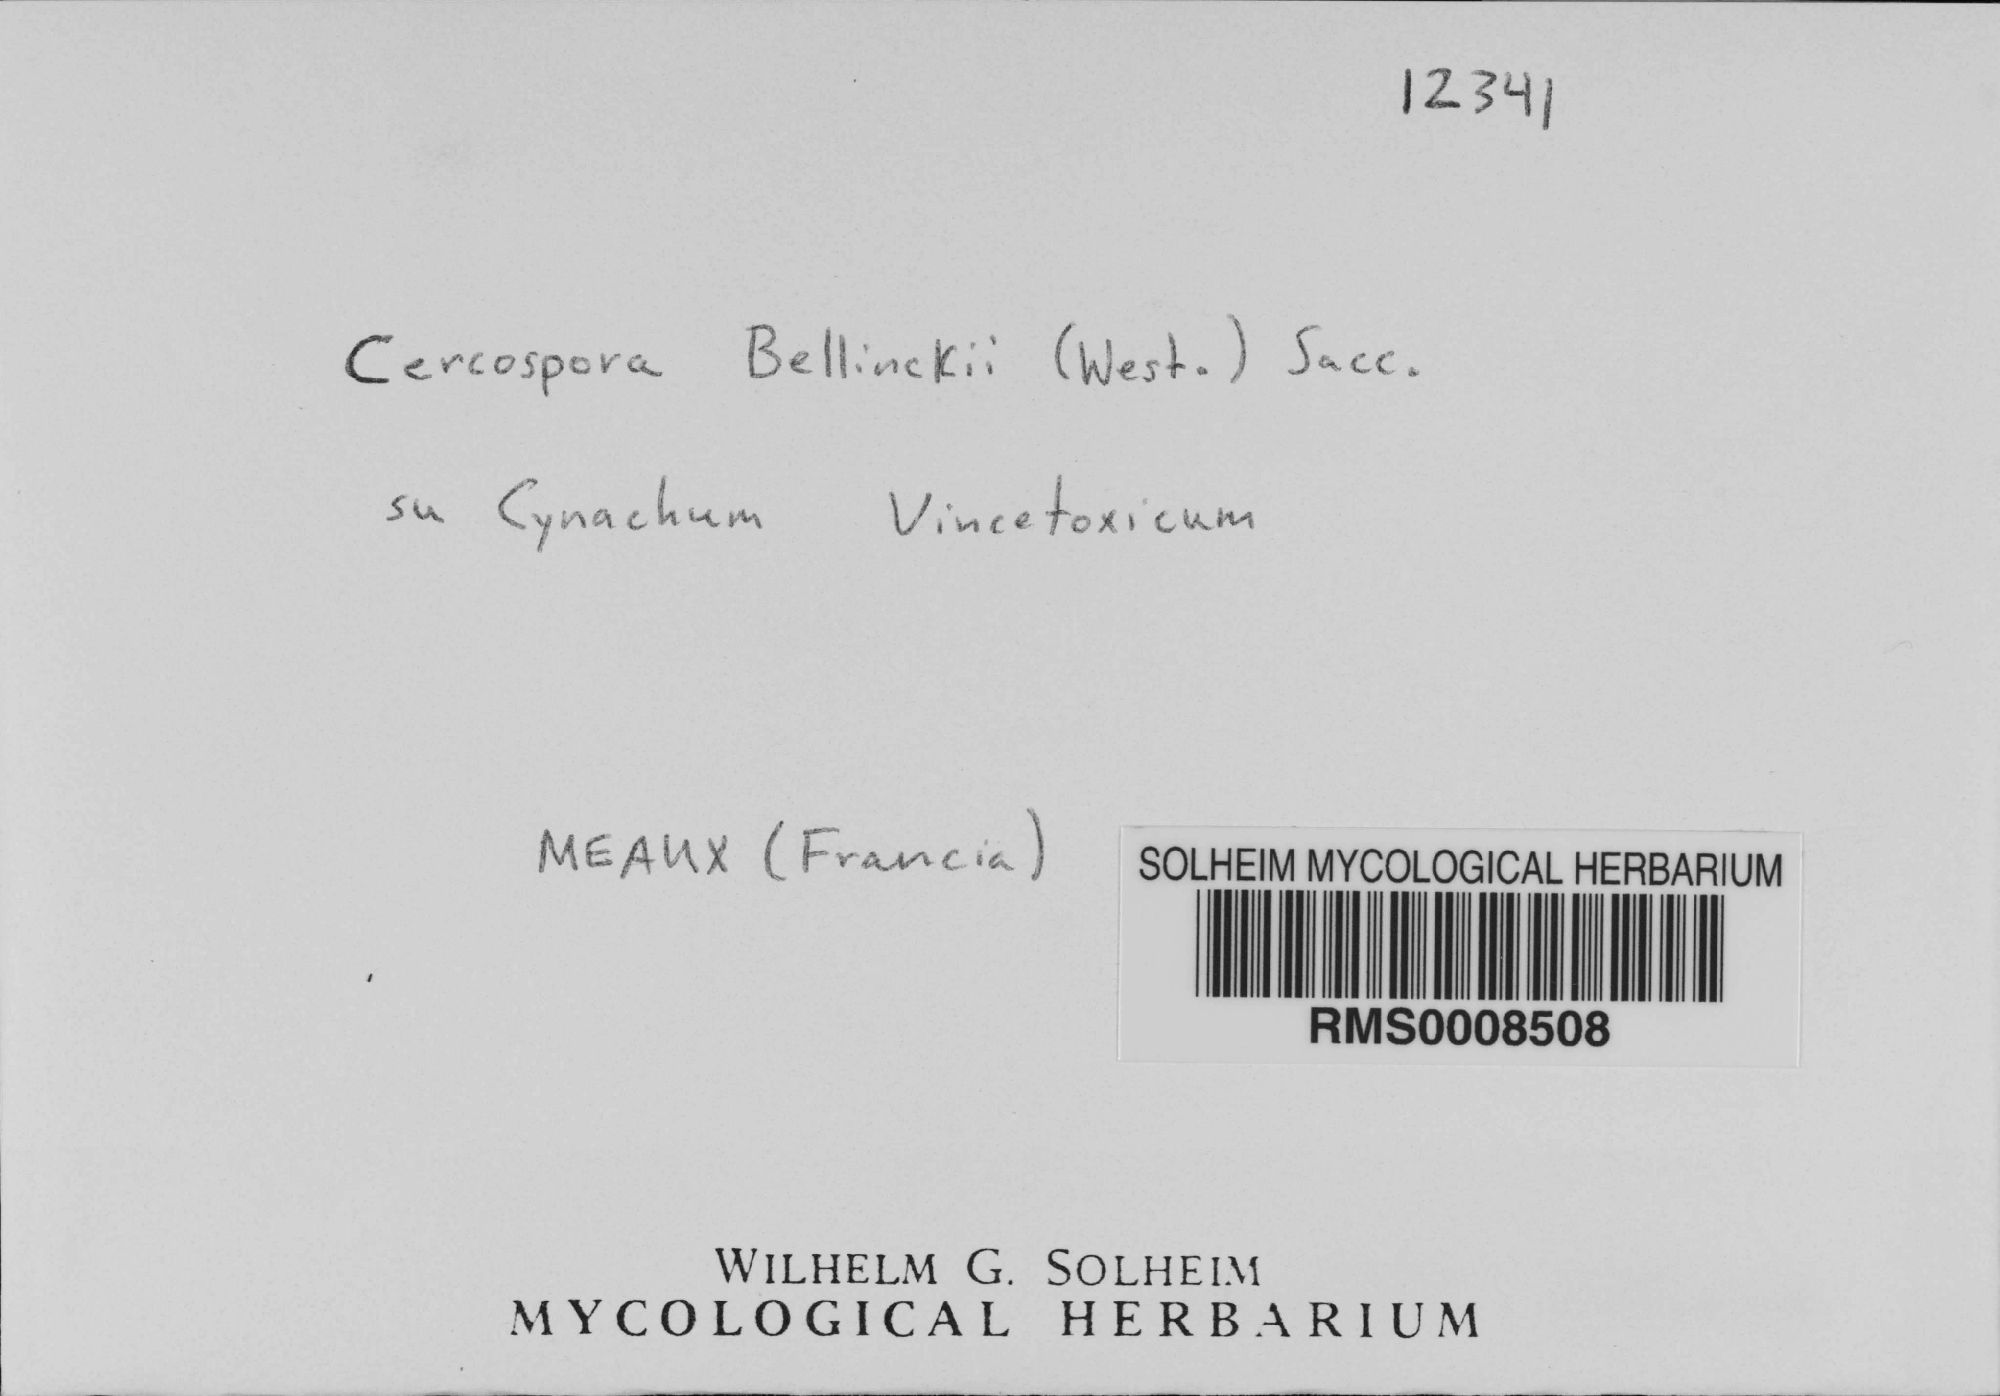 12341
Cercospora Bellinckii (West.) Sacc.
su Cynachum Vincetoxicum
MEAUX (Francia)
SOLHEIM MYCOLOGICAL HERBARIUM
RMS0008508
WILHELM G. SOLHEIM
MYCOLOGICAL HERBARIUM